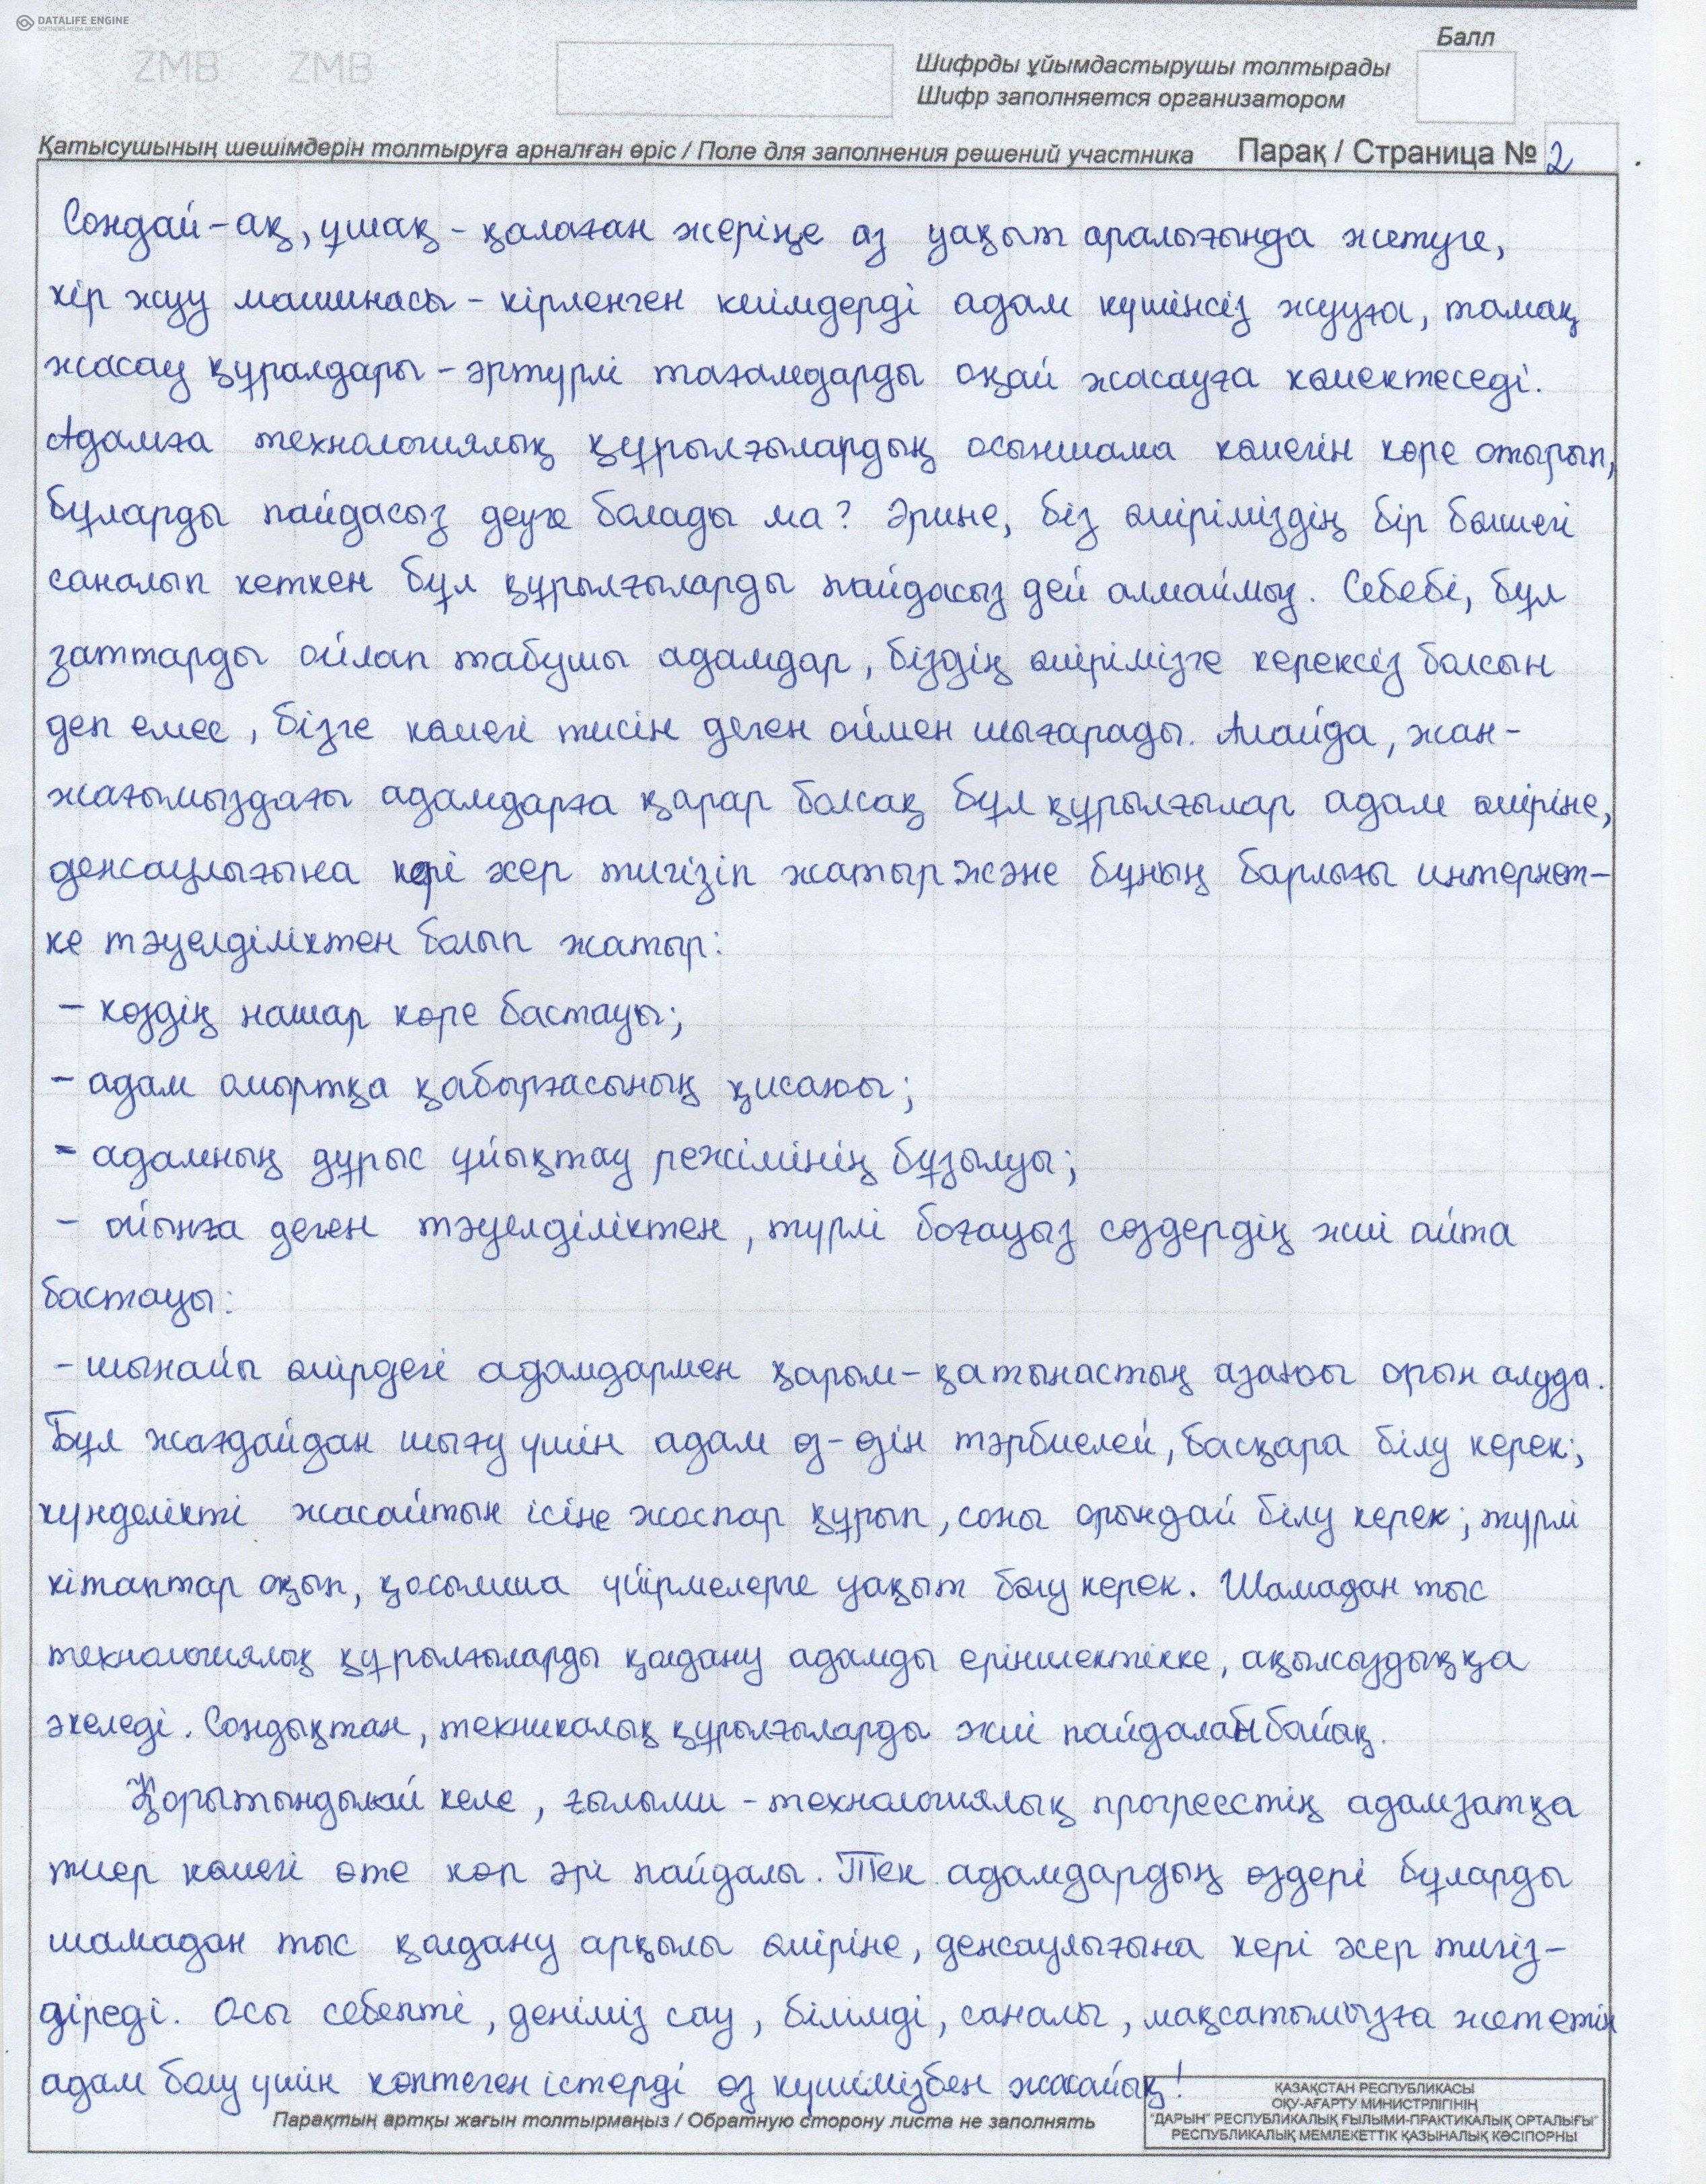 DATALIFE ENGINE
SOFTNEWS MEDIA GROUP
ZMB ZMB
Балл
Шифрды ұйымдастырушы толтырады
Шифр заполняется организатором
Қатысушының шешімдерін толтыруға арналған өріс / Поле для заполнения решений участника Парақ / Страница № 2
Сондай-ақ, ұшақ - қалаған жеріңе аз уақыт аралығында жетуге,
кір жуу машинасы - кірленген киімдерді адам күшінсіз жууға, тамақ
жасау құралдары - әртүрлі тағамдарды оңай жасауға көмектеседі.
Адамға технологиялық құрылғылардың осыншама көмегін көре отырып,
бұларды пайдасыз деуге болады ма? Әрине, біз өміріміздің бір бөлшегі
саналып кеткен бұл құрылғыларды пайдасыз дей алмаймыз. Себебі, бұл
заттарды ойлап табушы адамдар, біздің өмірімізге керексіз болсын
деп емес, бізге көмегі тисін деген оймен шығарады. Алайда, жан-
жағымыздағы адамдарға қарар болсақ бұл құрылғылар адам өміріне,
денсаулығына кері әсер тигізіп жатыр және бұның барлығы интернет-
ке тәуелділіктен болып жатыр:
- көздің нашар көре бастауы;
- адам омыртқа қабырғасының қисаюы;
- адамның дұрыс ұйықтау режімінің бұзылуы;
- ойынға деген тәуелділіктен, түрлі боғауыз сөздердің жиі айта
бастауы:
- шынайы өмірдегі адамдармен қарым-қатынастың азаюы орын алуда.
Бұл жағдайдан шығу үшін адам өз-өзін тәрбиелей, басқара білу керек;
күнделікті жасайтын ісіне жоспар құрып, соны орындай білу керек; түрлі
кітаптар оқып, қосымша үйірмелерге уақыт бөлу керек. Шамадан тыс
технологиялық құрылғыларды қолдану адамды еріншектікке, ақылсыздыққа
әкеледі. Сондықтан, техникалық құрылғыларды жиі пайдаланбайық.
Қорытындылай келе, ғылыми - технологиялық прогресстің адамзатқа
тиер көмегі өте көп әрі пайдалы. Тек адамдардың өздері бұларды
шамадан тыс қолдану арқылы өміріне, денсаулығына кері әсер тигіз-
діреді. Осы себепті, деніміз сау, білімді, саналы, мақсатымызға жететін
адам болу үшін көптеген істерді өз күшімізбен жасайық!
Парақтың артқы жағын толтырмаңыз / Обратную сторону листа не заполнять
ҚАЗАҚСТАН РЕСПУБЛИКАСЫ
ОҚУ-АҒАРТУ МИНИСТРЛІГІНІҢ
"ДАРЫН" РЕСПУБЛИКАЛЫҚ ҒЫЛЫМИ-ПРАКТИКАЛЫҚ ОРТАЛЫҒЫ"
РЕСПУБЛИКАЛЫҚ МЕМЛЕКЕТТІК ҚАЗЫНАЛЫҚ КӘСІПОРНЫ